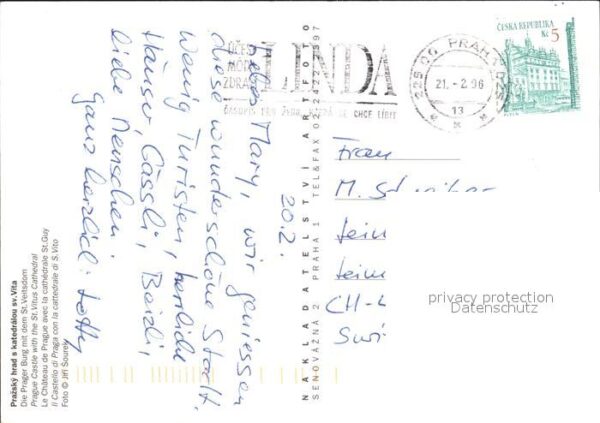 Pražský hrad s katedrálou sv. Víta
Die Prager Burg mit dem St. Veitsdom
Prague Castle with the St. Vitus Cathedral
Le Château de Prague avec la cathédrale St. Guy
Il Castello di Praga con la cattedrale di S. Vito
Foto © Jiří Sourek
20.2.
Liebes Mary, wir geniessen
diese wunderschöne Stadt.
Wenig Turisten, herrliche
Häuser, Gässli, Beizli,
liebe Menschen.
Ganz herzlich
NAKLADATELSTVÍ ARTFOTO
SENOVÁŽNÁ 2 PRAHA 1 TEL&FAX 02 24 22 2397
ÚČES
MÓDA
ZDRAVÍ
LINDA
ČASOPIS PRO ŽENU, KTERÁ SE CHCE LÍBIT
225 00 PRAHA 025
21.-2.96
13
ČESKÁ REPUBLIKA
Kč 5
Frau
M.
CH-
privacy protection
Datenschutz